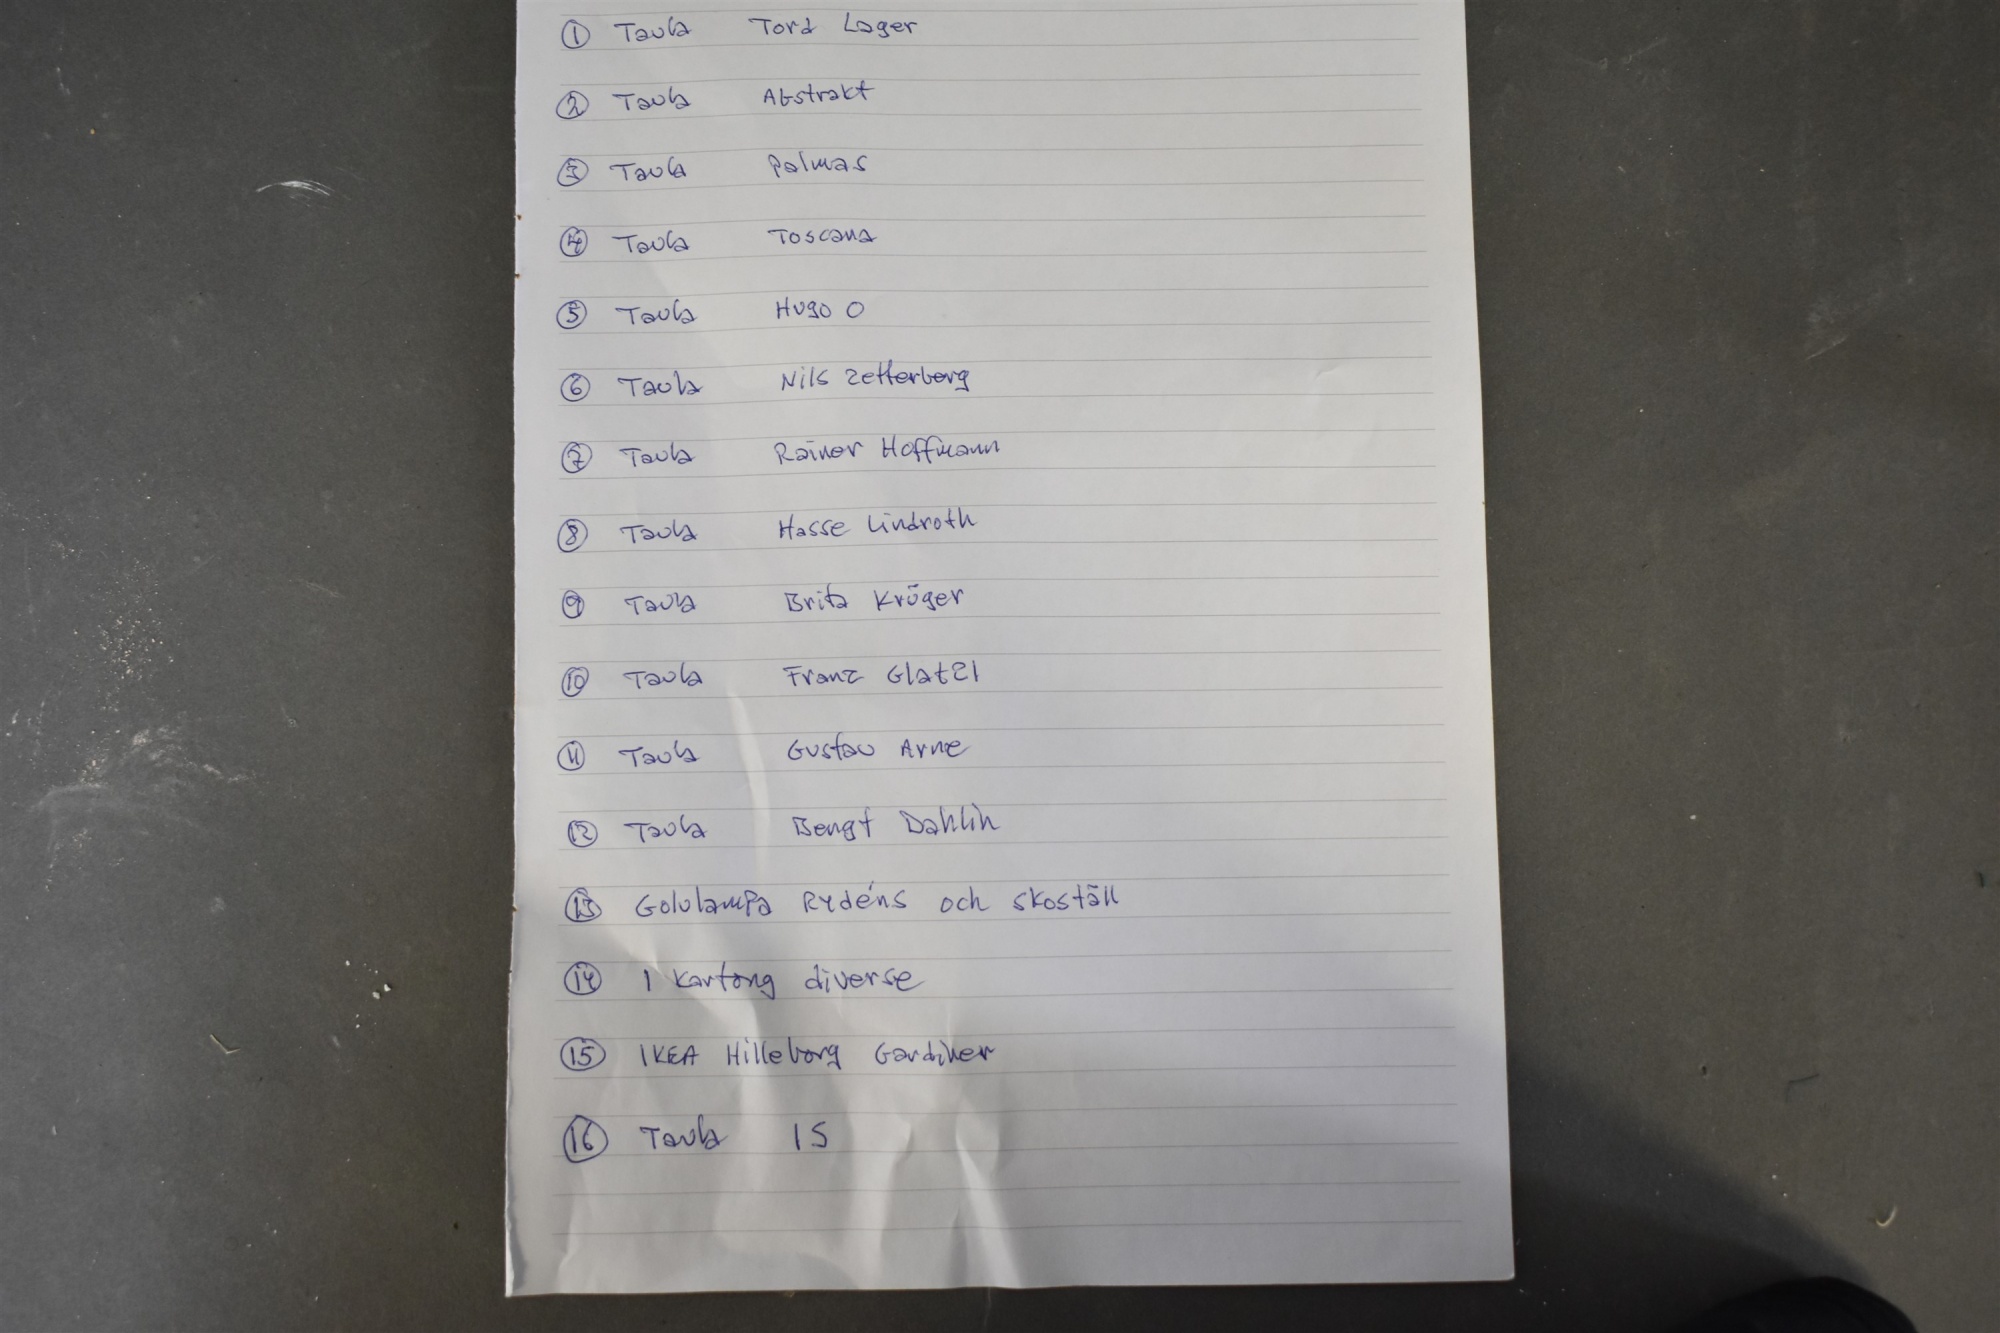 ① Tavla Tord Lager
② Tavla Abstrakt
③ Tavla Palmas
④ Tavla Toscana
⑤ Tavla Hugo O
⑥ Tavla Nils Zetterberg
⑦ Tavla Rainer Hoffmann
⑧ Tavla Hasse Lindroth
⑨ Tavla Brita Kröger
⑩ Tavla Franz Glatzl
⑪ Tavla Gustav Arne
⑫ Tavla Bengt Dahlin
⑬ Golvlampa Rydéns och skoställ
⑭ 1 Kartong diverse
⑮ IKEA Hilleborg Gardiner
⑯ Tavla IS